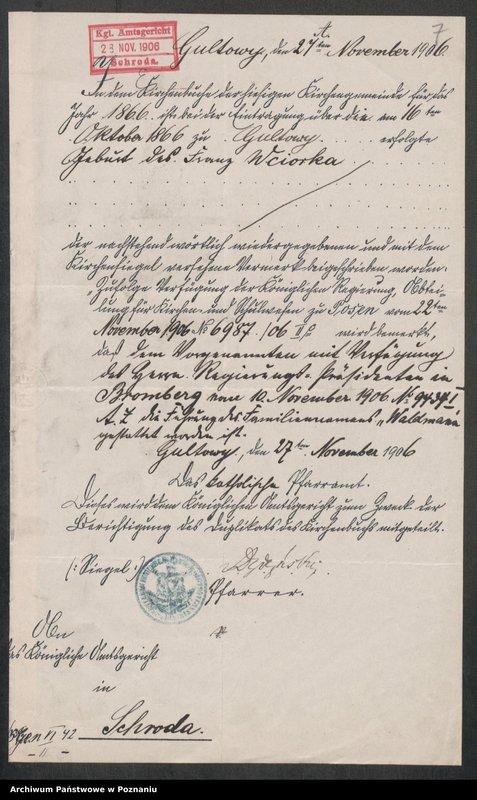 7
Kgl. Amtsgericht
28 NOV. 1906
Schroda.
Gultowy, den 27ten November 1906
In dem Kirchenbuche der hiesigen Kirchengemeinde für das
Jahr 1866 ist bei der Eintragung über die am 16ten
Oktober 1866 zu Gultowy erfolgte
Geburt des Franz Wciorka
der nachstehend wörtlich wiedergegebene und mit dem
Kirchensiegel versehene Vermerk beigeschrieben worden.
Zufolge Verfügung der Königlichen Regierung, Abtei-
lung für Kirchen- und Schulwesen zu Posen vom 22ten
November 1906 No 6987./06 wird bemerkt,
daß dem Vorgenannten mit Verfügung
des Herrn Regierungs-Präsidenten in
Bromberg vom 10. November 1906 No 9434 I
A. Z die Führung des Familiennamens „Waldmann"
gestattet worden ist.
Gultowy, den 27ten November 1906
Das katholische Pfarramt.
Dieses wird dem Königlichen Amtsgericht zum Zweck der
Berichtigung des Duplikats des Kirchenbuchs mitgeteilt.
(: Siegel :)
Pfarrer.
An
das Königliche Amtsgericht
in
Schroda.
Gen VI 42
Archiwum Państwowe w Poznaniu